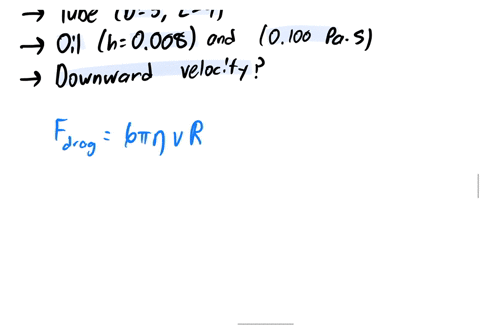 → Tube
→ Oil (h=0.008) and (0.100 Pa.s)
→ Downward velocity?
F drag = 6πηvR